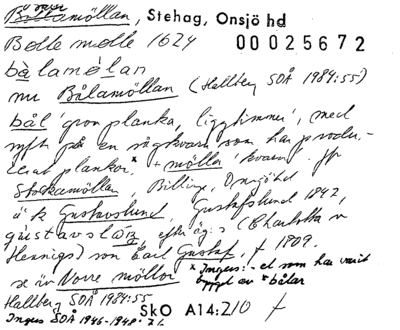 övre
Bålamöllan, Stehag, Onsjö hd
Bolle mølle 1624
00025672
bàlamø̀lan
nu Bålamöllan (Hallberg SOÅ 1984:55)
bål 'grov planka, liggtimmer', med
syft på en sågkvarn som har produ-
cerat plankor.* + mölla 'kvarn'. Jfr
Stockamöllan, Billinge, Onsjö hd
ä k Gustavslund, Gustafslund 1842,
gustavsl efter äg:s (Charlotta v
Hennigs) son Carl Gustaf, † 1809.
se äv Norre möllor * Ingers: el som har varit
byggd av * bålar
Hallberg SOÅ 1984:55
Ingers SOÅ 1946-1948:
SkO A14:210